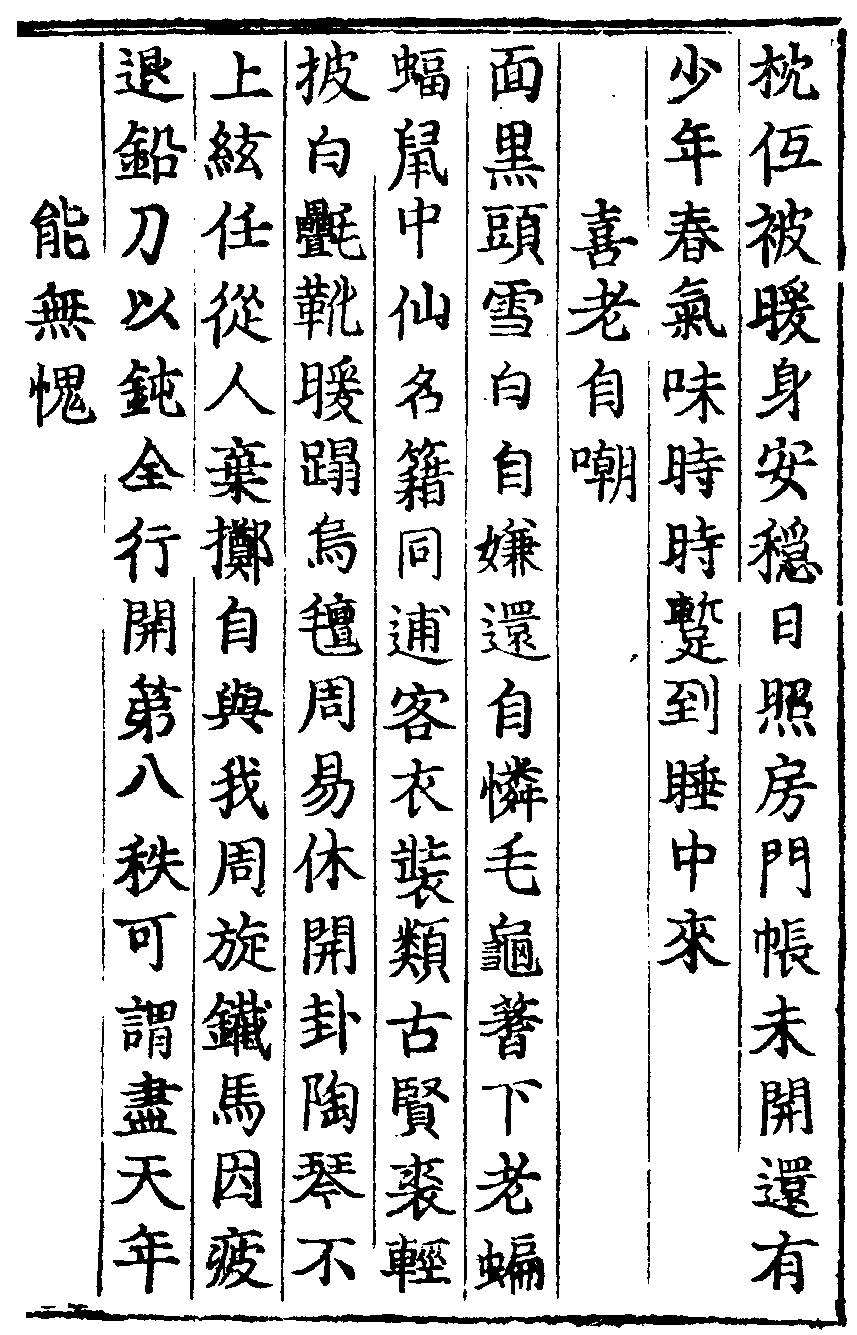 枕低被暖身安穩日照房門帳未開還有
少年春氣味時時蹔到睡中來
喜老自嘲
面黒頭雪白自嫌還自憐毛龜蓍下老蝙
蝠鼠中仙名籍同逋客衣裝類古賢裘輕
披白㲲靴暖蹋烏氊周易休開卦陶琴不
上絃任從人棄擲自與我周旋鐵馬因疲
退鉛刀以鈍全行開第八秩可謂盡天年
能無愧